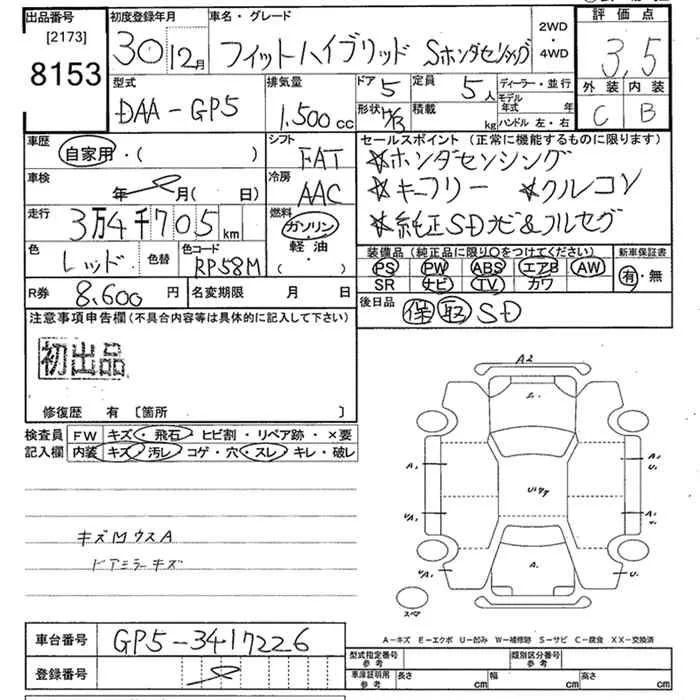 出品番号
[2173]
8153
初度登録年月
30 12月
車名・グレード
フィットハイブリッド Sホンダセンシング
2WD
・
4WD
評価点
3.5
外装 内装
C B
型式
DAA-GP5
排気量
1.500 cc
ドア 5
定員 5人
ディーラー・並行
形状
積載 kg
モデル年式 年
ハンドル 左・右
車歴
自家用・( )
シフト
FAT
車検
年 月( 日)
冷房
AAC
走行
3万4千705km
燃料
ガソリン・
軽油
( ・ )
色
レッド
色替
色コード
RP58M
R券 8,600円
名変期限 月 日
セールスポイント (正常に機能するものに限ります)
☆ホンダセンシング
☆キーフリー ☆クルコン
☆純正SDナビ&フルセグ
装備品 (純正品に限り○をつけてください)
新車保証書
PS PW ABS エアB AW
SR ナビ TV カワ
有・無
後日品
保 取 SD
注意事項申告欄(不具合内容等は具体的に記入して下さい)
初出品
修復歴 有 〔箇所 〕
検査員記入欄
FW キズ・飛石・ヒビ割・リペア跡・×要
内装 キズ・汚レ・コゲ・穴・スレ・キレ・破レ
キズMウスA
ドアミラーキズ
A2
A.
スペア
A-キズ E-エクボ U-凹み W-補修跡 S-サビ C-腐食 XX-交換済
車台番号
GP5-3417226
登録番号
型式指定番号
参考
類別区分番号
参考
車庫証明用
参考
長さ cm
幅 cm
高さ cm